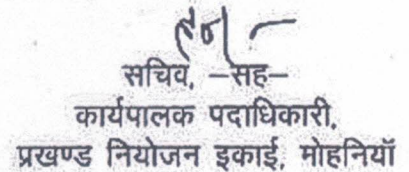 सचिव, –सह–
कार्यपालक पदाधिकारी,
प्रखण्ड नियोजन इकाई, मोहनियॉ